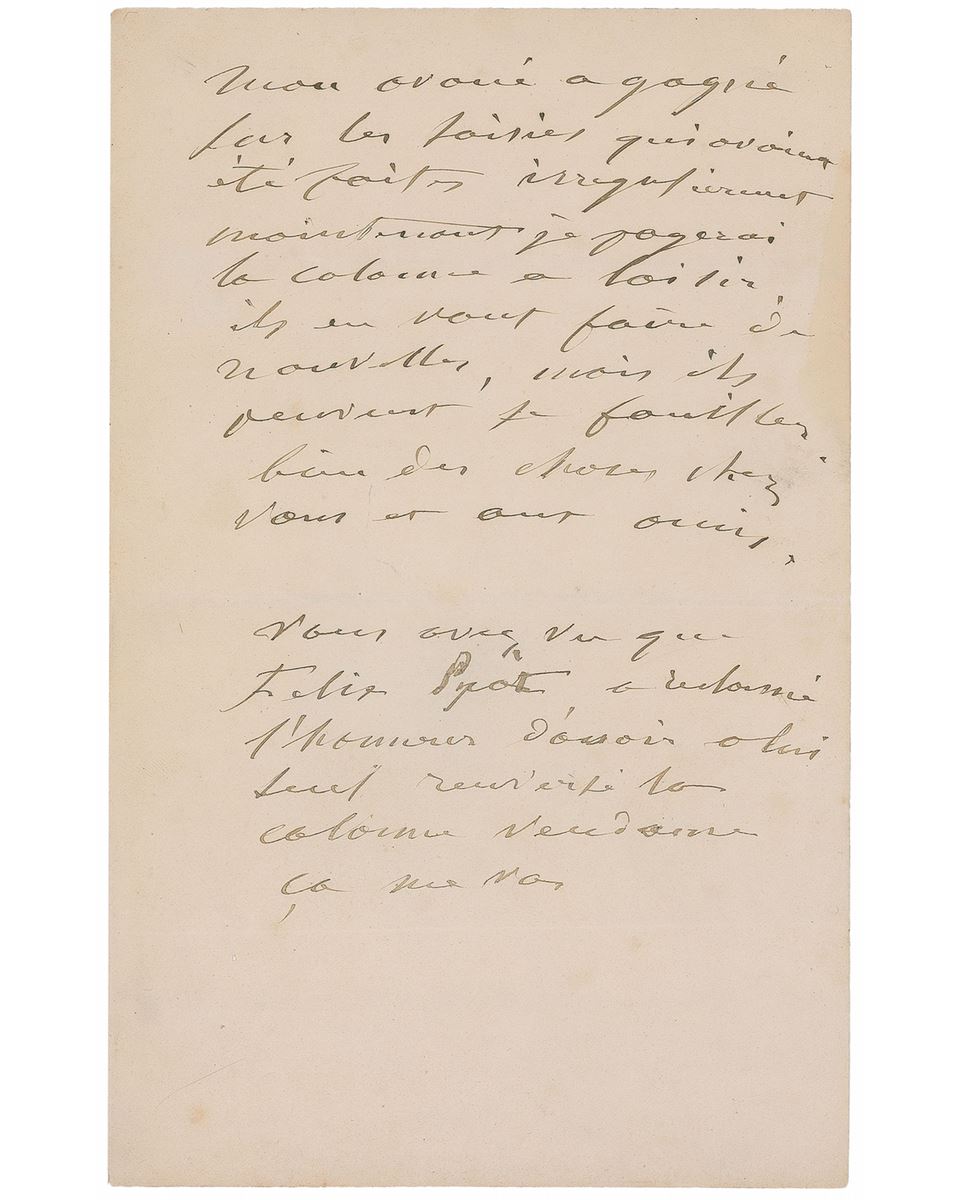 Mon avoué a gagné
sur les saisies qui avoient
été faites irregulierement
maintenant je payerai
la colonne a loisir
ils en vont faire de
nouvelles, mais ils
peuvent se fouiller
bien des choses chez
vous et aux amis.
vous avez vu que
Felix Pyat a reclamé
l'honneur d'avoir a lui
seul renversé la
colonne Vendome
ça me va